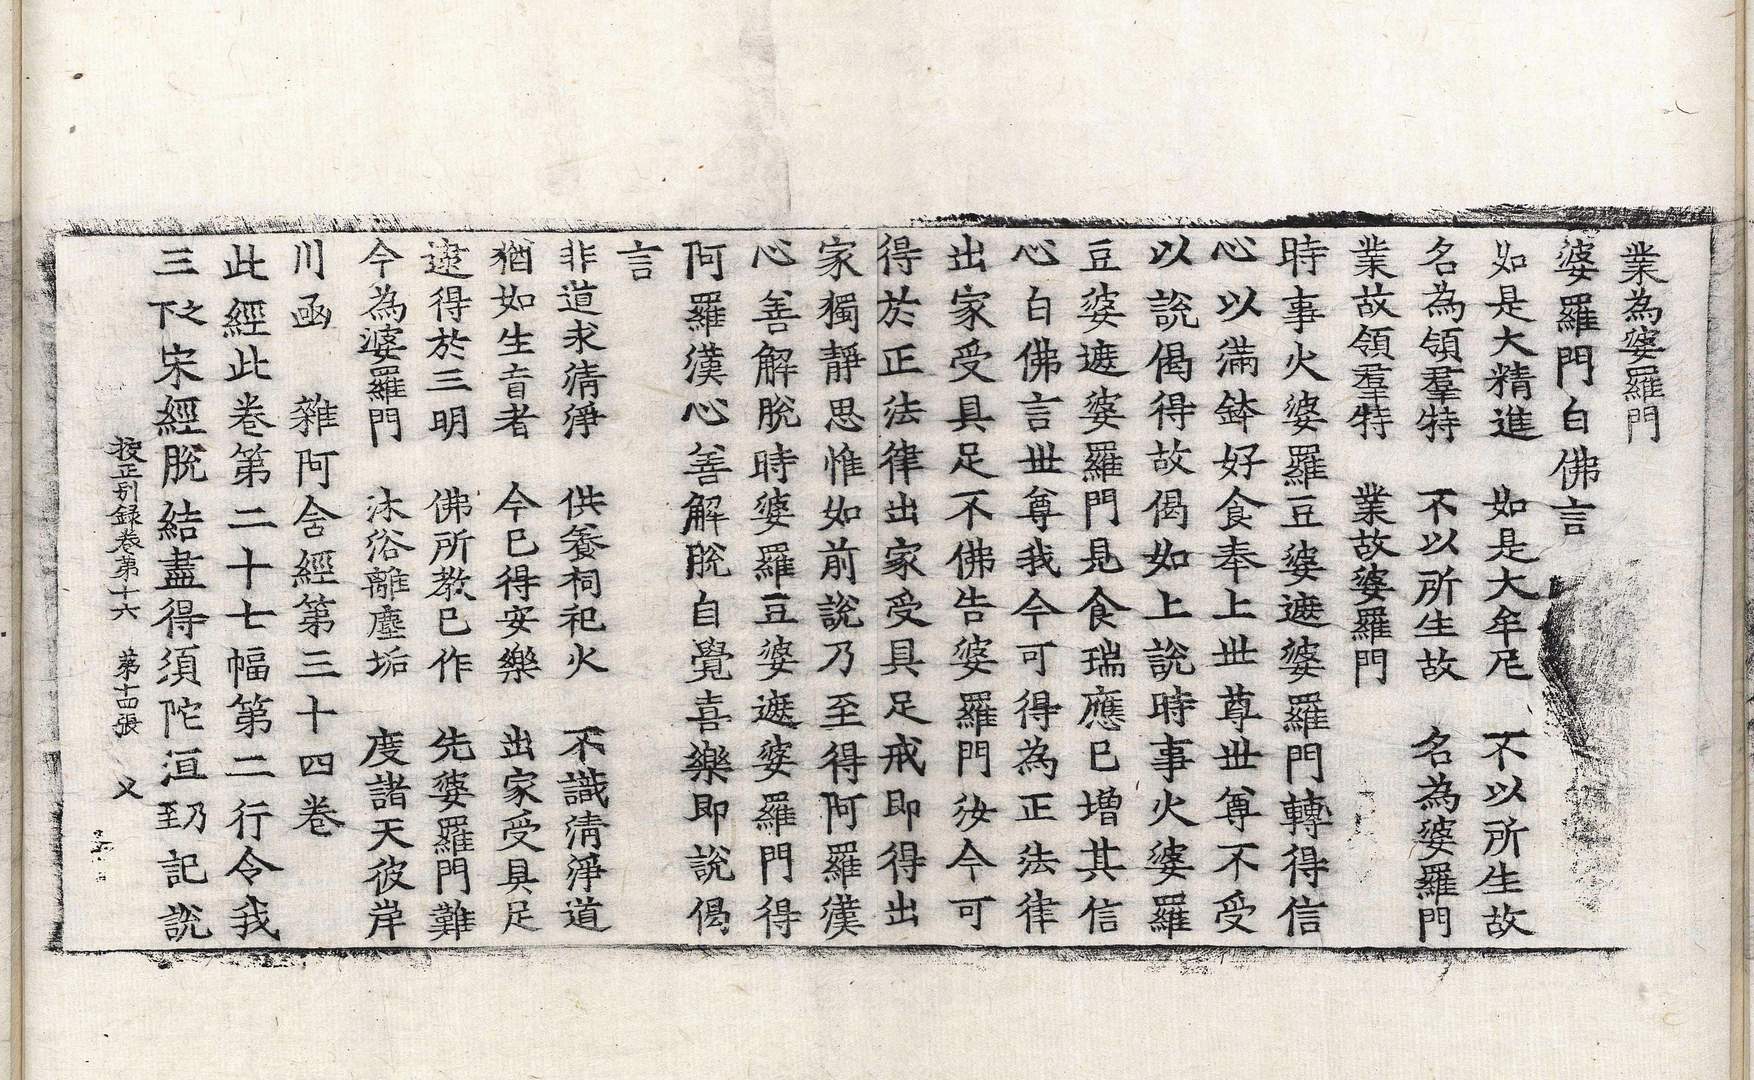 業為婆羅門
婆羅門白佛言
如是大精進　如是大牟尼　不以所生故
名為領羣特　不以所生故　名為婆羅門
業故領羣特　業故婆羅門
時事火婆羅豆婆遮婆羅門轉得信
心以滿鉢好食奉上世尊世尊不受
以說偈得故偈如上說時事火婆羅
豆婆遮婆羅門見食瑞應已增其信
心白佛言世尊我今可得為正法律
出家受具足不佛告婆羅門汝今可
得於正法律出家受具足戒即得出
家獨靜思惟如前說乃至得阿羅漢
心善解脫時婆羅豆婆遮婆羅門得
阿羅漢心善解脫自覺喜樂即說偈
言
非道求清淨　供養祠祀火　不識清淨道
猶如生盲者　今已得安樂　出家受具足
逮得於三明　佛所教已作　先婆羅門難
今為婆羅門　沐浴離塵垢　度諸天彼岸
川函　雜阿含經第三十四卷
此經此卷第二十七幅第二行令我
三下之宋經脫結盡得須陀洹乃至記說
挍正別錄卷第十六　第十四張　义